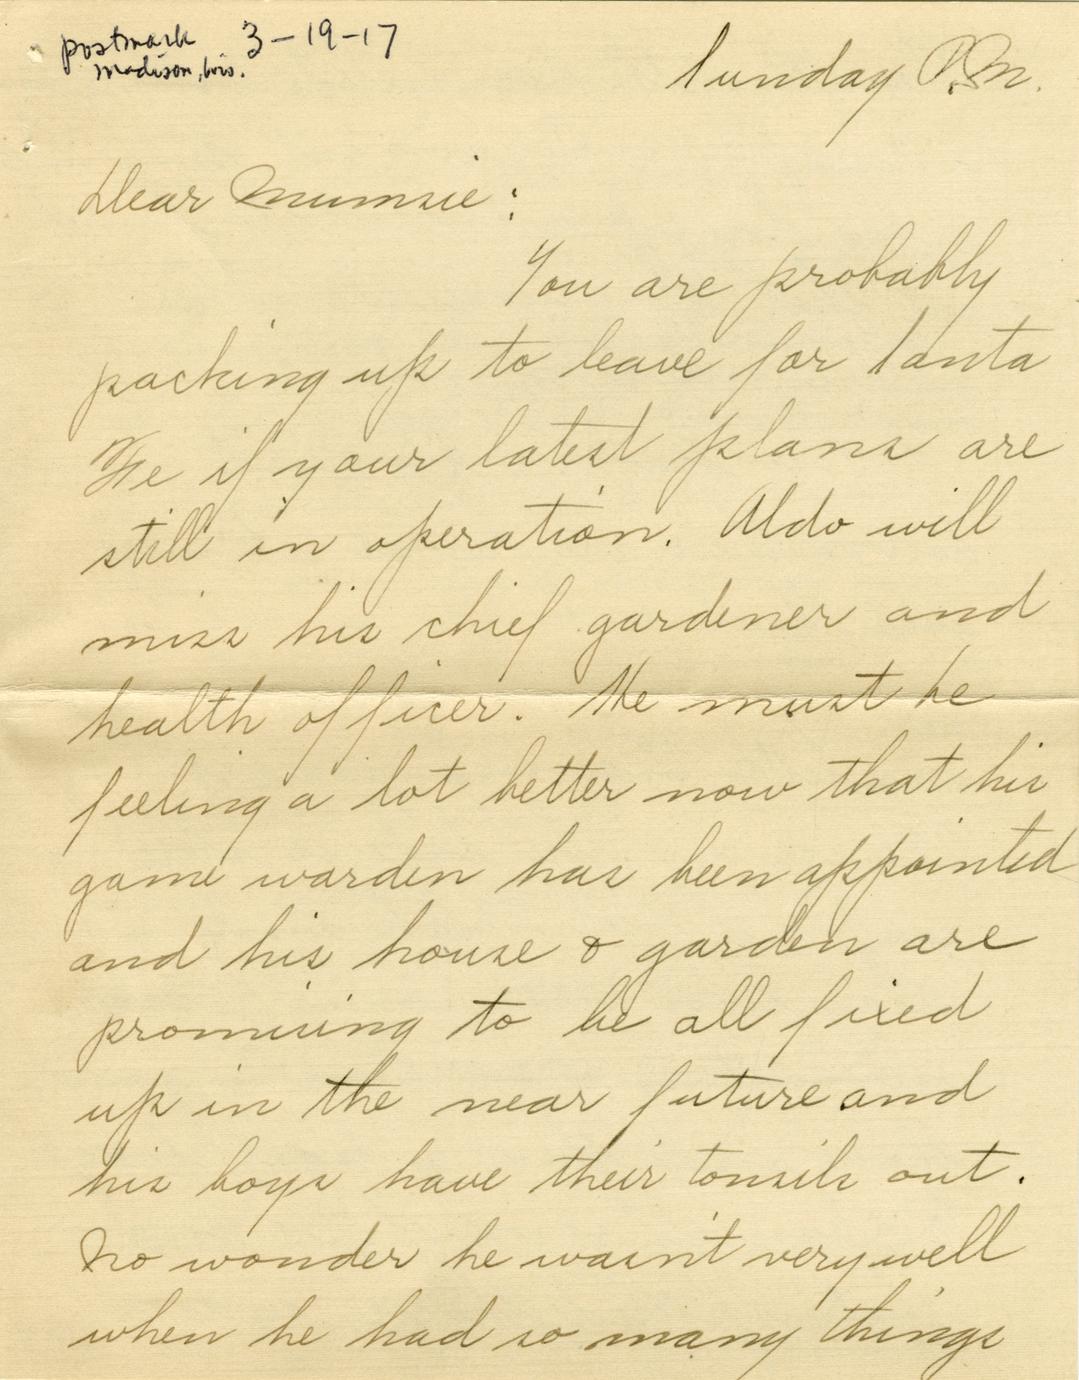 postmark 3-19-17
Madison, Wis.
Sunday P.M.
Dear Mumsie:
You are probably
packing up to leave for Santa
Fe if your latest plans are
still in operation. Aldo will
miss his chief gardener and
health officer. He must be
feeling a lot better now that his
game warden has been appointed
and his house & garden are
promising to be all fixed
up in the near future and
his boys have their tonsils out.
No wonder he wasn't very well
when he had so many things